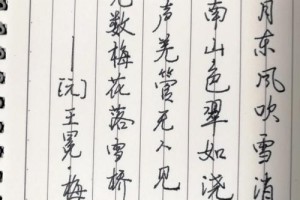 月东风吹雪消
南山色翠如浇
声羌管无人见
数梅花落雪桥
—[元]王冕·梅